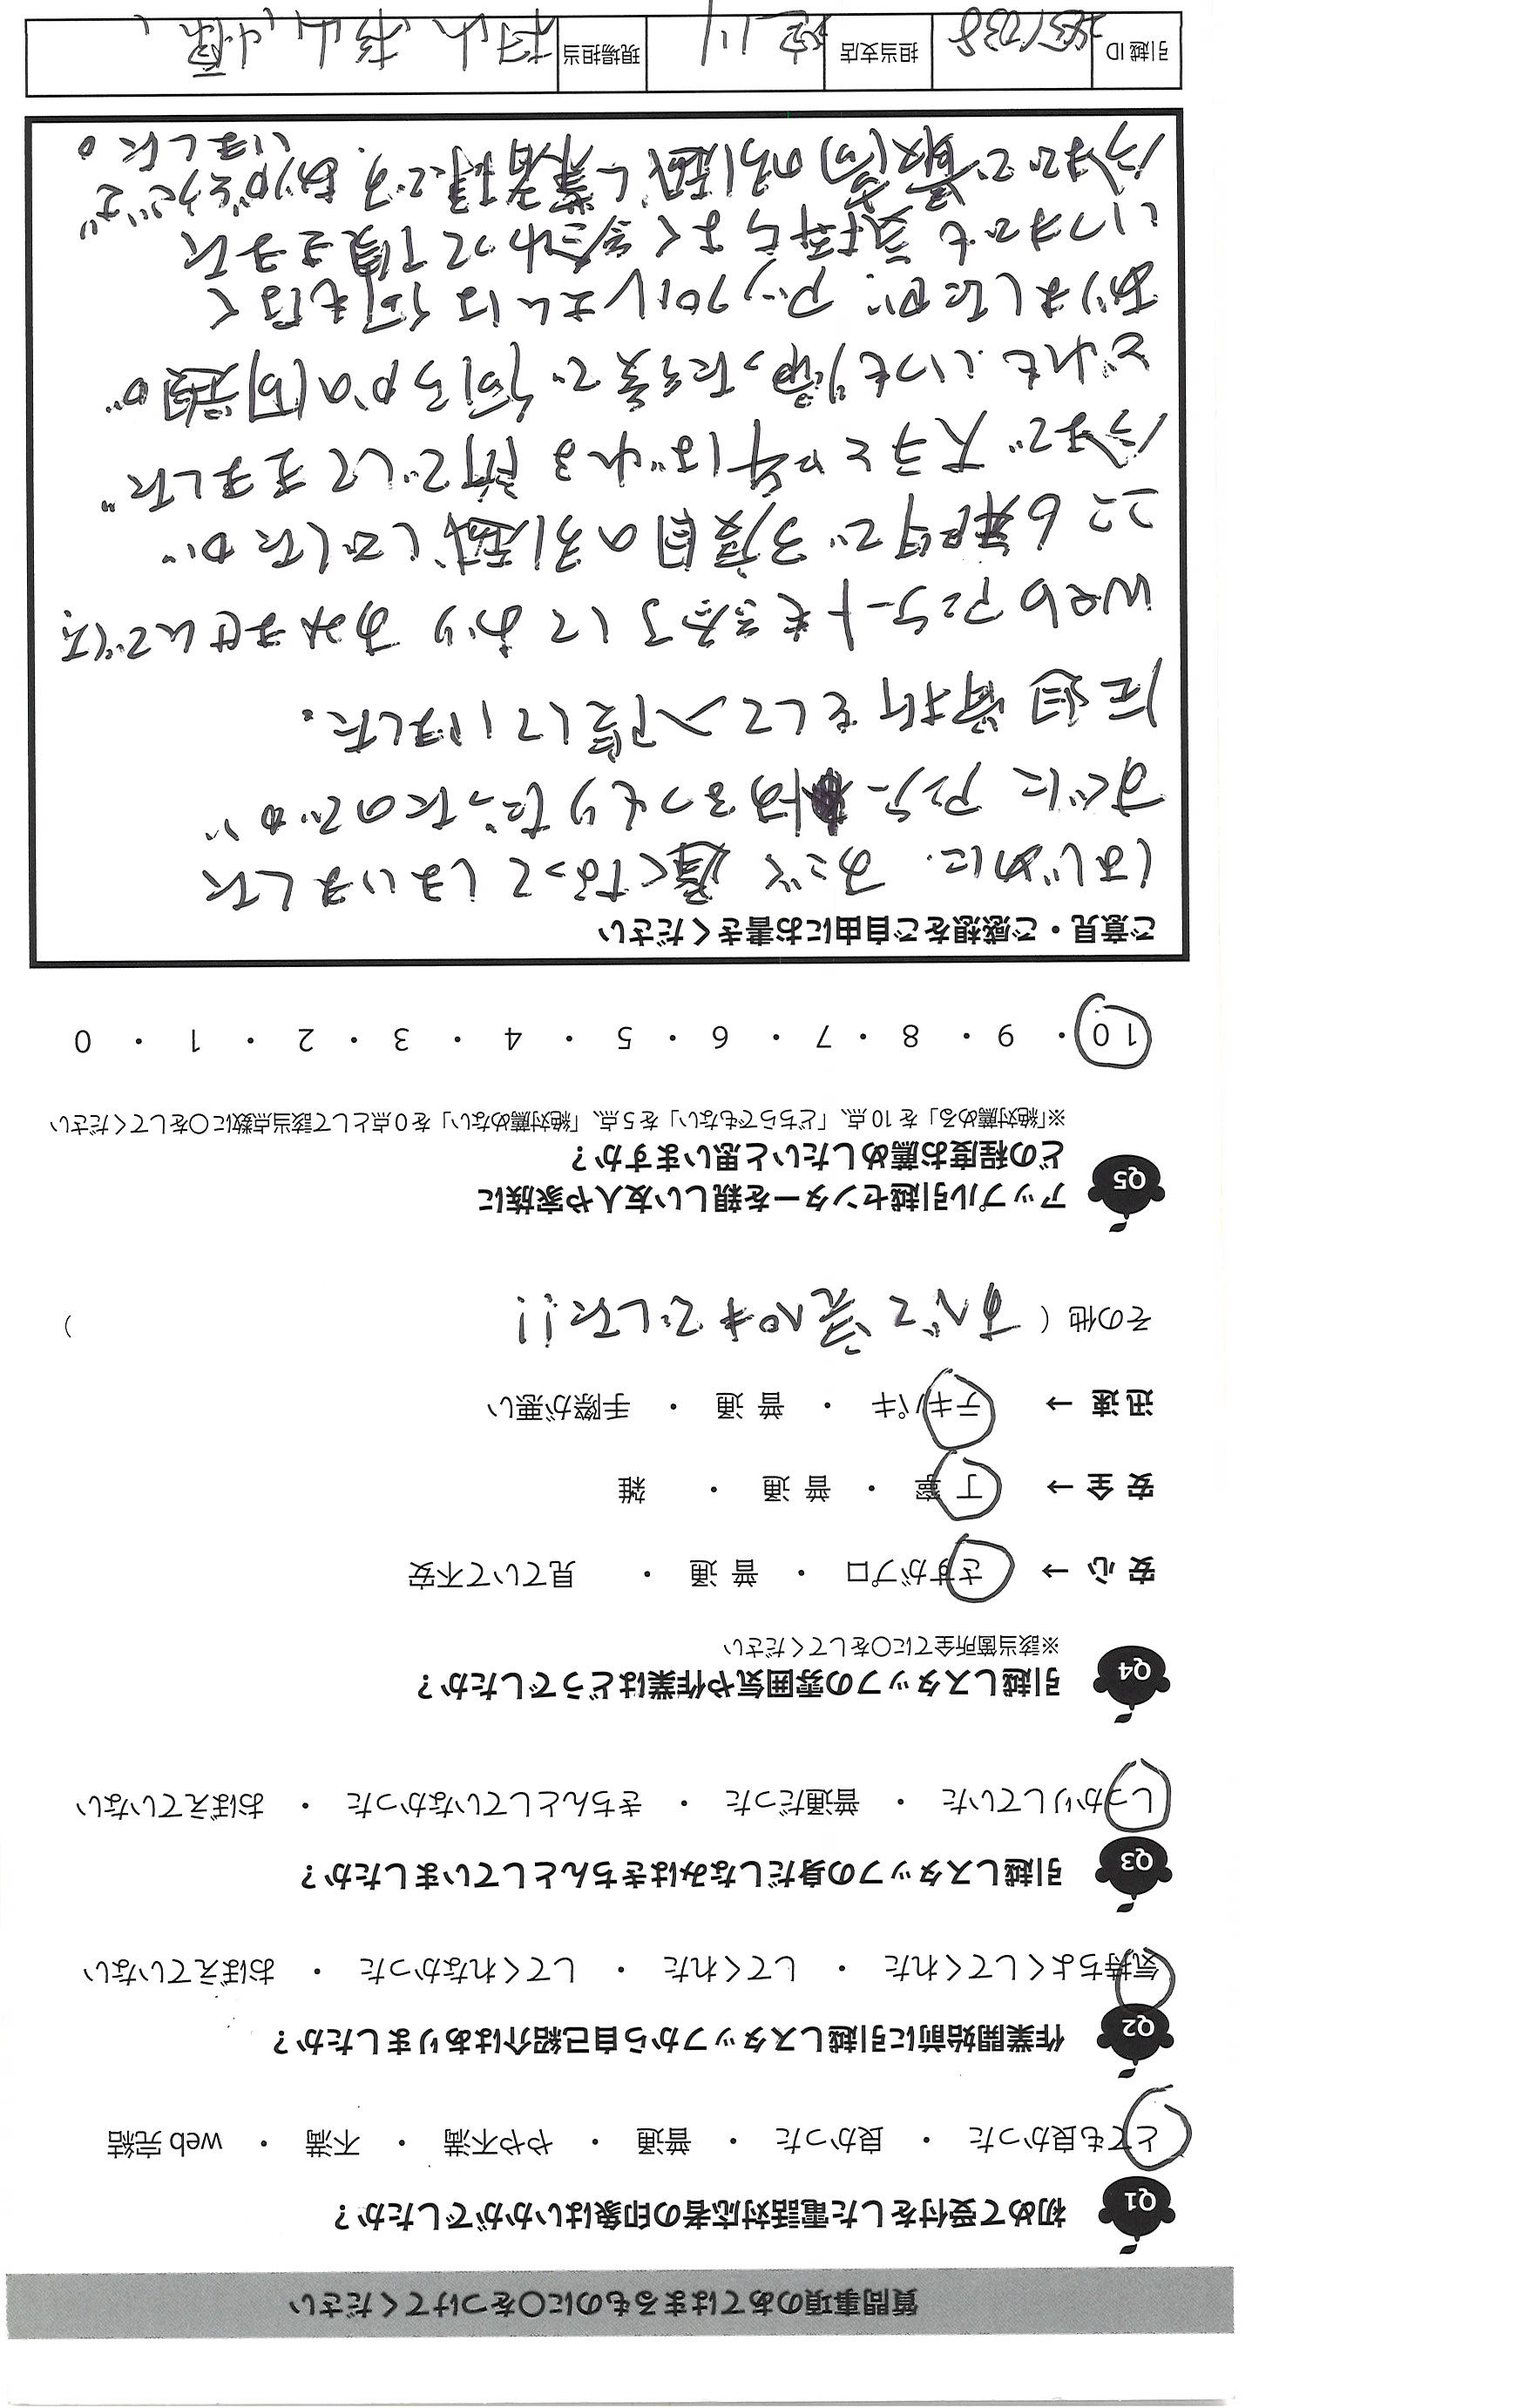 質問事項のあてはまるものに○をつけてください
Q1 初めて受付をした電話対応者の印象はいかがでしたか？
とても良かった ・ 良かった ・ 普通 ・ やや不満 ・ 不満 ・ web完結
Q2 作業開始前に引越しスタッフから自己紹介はありましたか？
気持ちよくしてくれた ・ してくれた ・ してくれなかった ・ おぼえていない
Q3 引越しスタッフの身だしなみはきちんとしていましたか？
しっかりしていた ・ 普通だった ・ きちんとしていなかった ・ おぼえていない
Q4 引越しスタッフの雰囲気や作業はどうでしたか？
※該当箇所全てに○をしてください
安心 → さすがプロ ・ 普通 ・ 見ていて不安
安全 → 丁寧 ・ 普通 ・ 雑
迅速 → テキパキ ・ 普通 ・ 手際が悪い
その他（ すべて完ペキでした!! ）
Q5 アップル引越センターを親しい友人や家族に
どの程度お薦めしたいと思いますか？
※「絶対薦める」を10点、「どちらでもない」を5点、「絶対薦めない」を0点として該当点数に○をしてください
10 ・ 9 ・ 8 ・ 7 ・ 6 ・ 5 ・ 4 ・ 3 ・ 2 ・ 1 ・ 0
ご意見・ご感想をご自由にお書きください
はじめに、すごく遅くなってしまいました
すぐに アンケー するつもりだったのですが、
圧迫骨折をして入院していました。
Webアンケートも終了しており すみませんでした
ここ6年間で3度目の引越しでしたが
今まで大手とか呼ばれる所でしてきました
どれもいつも帰った後で何らかの問題が
ありましたが、アップルさんは何もなく
いつまでも気持ちよく終わって頂きました
今までで最高の引越し業者様です。ありがとうござ
いました。
引越ID 担当支店 淀川 現場担当 村山、杉山、小塚、